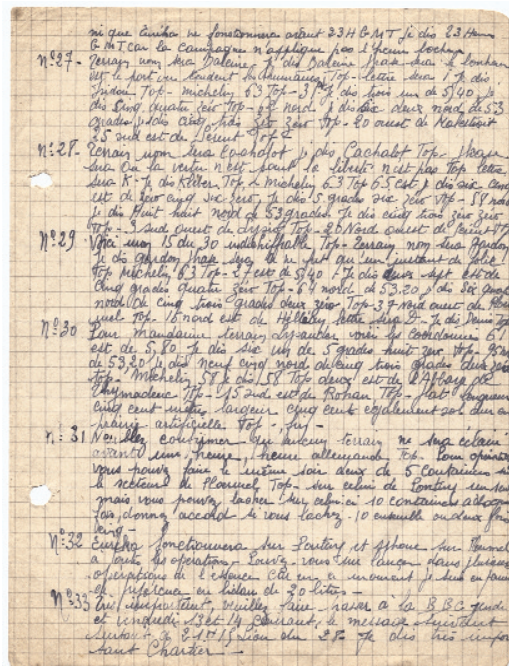 ni que Eureka ne fonctionnera avant 23 H G M T je dis 23 Heures
G M T car la campagne n'applique pas l'heure boche
n°27 - Terrain nom sera Baleine, je dis Baleine phrase sera le bonheur
est le port où tendent les humains, Top - lettre sera I je dis
Isidor Top - Michelin 63 Top - 31 je dis trois un de 5,40 je
dis cinq quatre zéro Top - 62 nord je dis six deux nord de 53
grades je dis cinq trois zéro zéro Top - 20 ouest de Malestroit
25 sud est de Sérent Top
n°28 - Terrain nom sera Cachalot je dis Cachalot Top - phrase
sera Où la vertu n'est point la liberté n'est pas Top lettre
sera K - je dis Kléber Top Michelin 63 Top 65 est, je dis six cinq
est de zéro cinq six zéro, je dis 5 grades six zéro Top - 88 nord
je dis Huit huit nord de 53 grades je dis cinq trois zéro zéro
Top - 3 sud ouest de Top - 26 Nord ouest de Sérent Top
n°29 Voici mon 15 du 30 indéchiffrable Top - Terrain nom sera Gardon
je dis gardon phrase sera ce ne fut qu'un instant de folie
Top Michelin 63 Top - 27 est de 5,40 je dis deux sept est de
cinq grades quatre zéro Top - 64 nord de 53.20 je dis six quatre
nord de cinq trois grades deux zéro Top - 37 nord ouest de
Top - 16 nord est de lettre sera D - je dis Denis Top
n°30 Pour Mandarine terrain voici les coordonnées 61
est de 5,80 je dis six un de 5 grades huit zéro Top - 95 nord
de 53,20 je dis neuf cinq nord de cinq trois grades deux zéro
Top - Michelin 58 je dis 58 Top deux est de l'Abbaye de
Thymadeuc Top - 15 sud est de Rohan Top - plat longueur
cinq cent mètres largeur cinq cent également sol dur en
prairie artificielle Top -
n°31 Veuillez confirmer qu'aucun terrain ne sera éclairé
avant une heure, heure allemande Top. Pour opérations
vous pouvez faire le même soir deux de 5 Containers sur
le secteur de Ploërmel Top - sur celui de Pontivy un seul
mais vous pouvez lâcher sur celui-ci 10 containers à chaque
fois, donnez accord si vous lâchez 10 ensemble ou deux fois
cinq -
n°32 Eureka fonctionnera sur Pontivy et sphone sur Ploërmel
à toutes les opérations - Pouvez-vous me lancer dans plusieurs
opérations de l'essence car en ce moment je suis en panne
de préférence en bidon de 20 litres -
n°33 Très important, veuillez faire passer à la B.B.C. jeudi
et vendredi 13 et 14 courant, le message suivant
du 28 je dis très impor
tant Chartier -